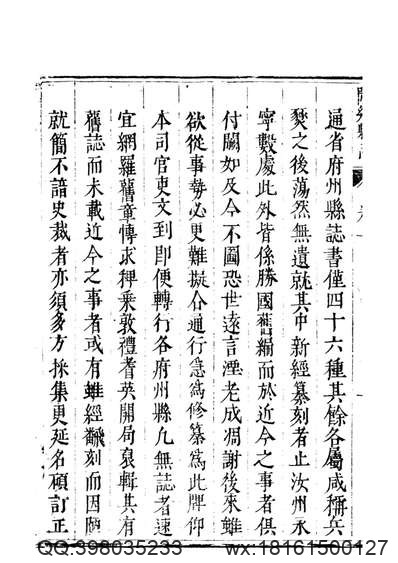 通省府州縣誌書僅四十六種其餘各屬咸稱兵
燹之後蕩然無遺就其中新經纂刻者止汝州永
寧數處此外皆係勝國舊編而於近今之事者俱
付闕如及今不圖恐世遠言湮老成凋謝後來雖
欲從事勢必更難擬合通行急為修纂為此牌仰
本司官吏文到即便轉行各府州縣凡無誌者速
宜網羅舊章博求稗乘敦禮耆英開局裒輯其有
舊誌而未載近今之事者或有雖經翻刻而因陋
就簡不諳史裁者亦須多方採集更延名碩訂正
QQ:398035233 wx:18161500127